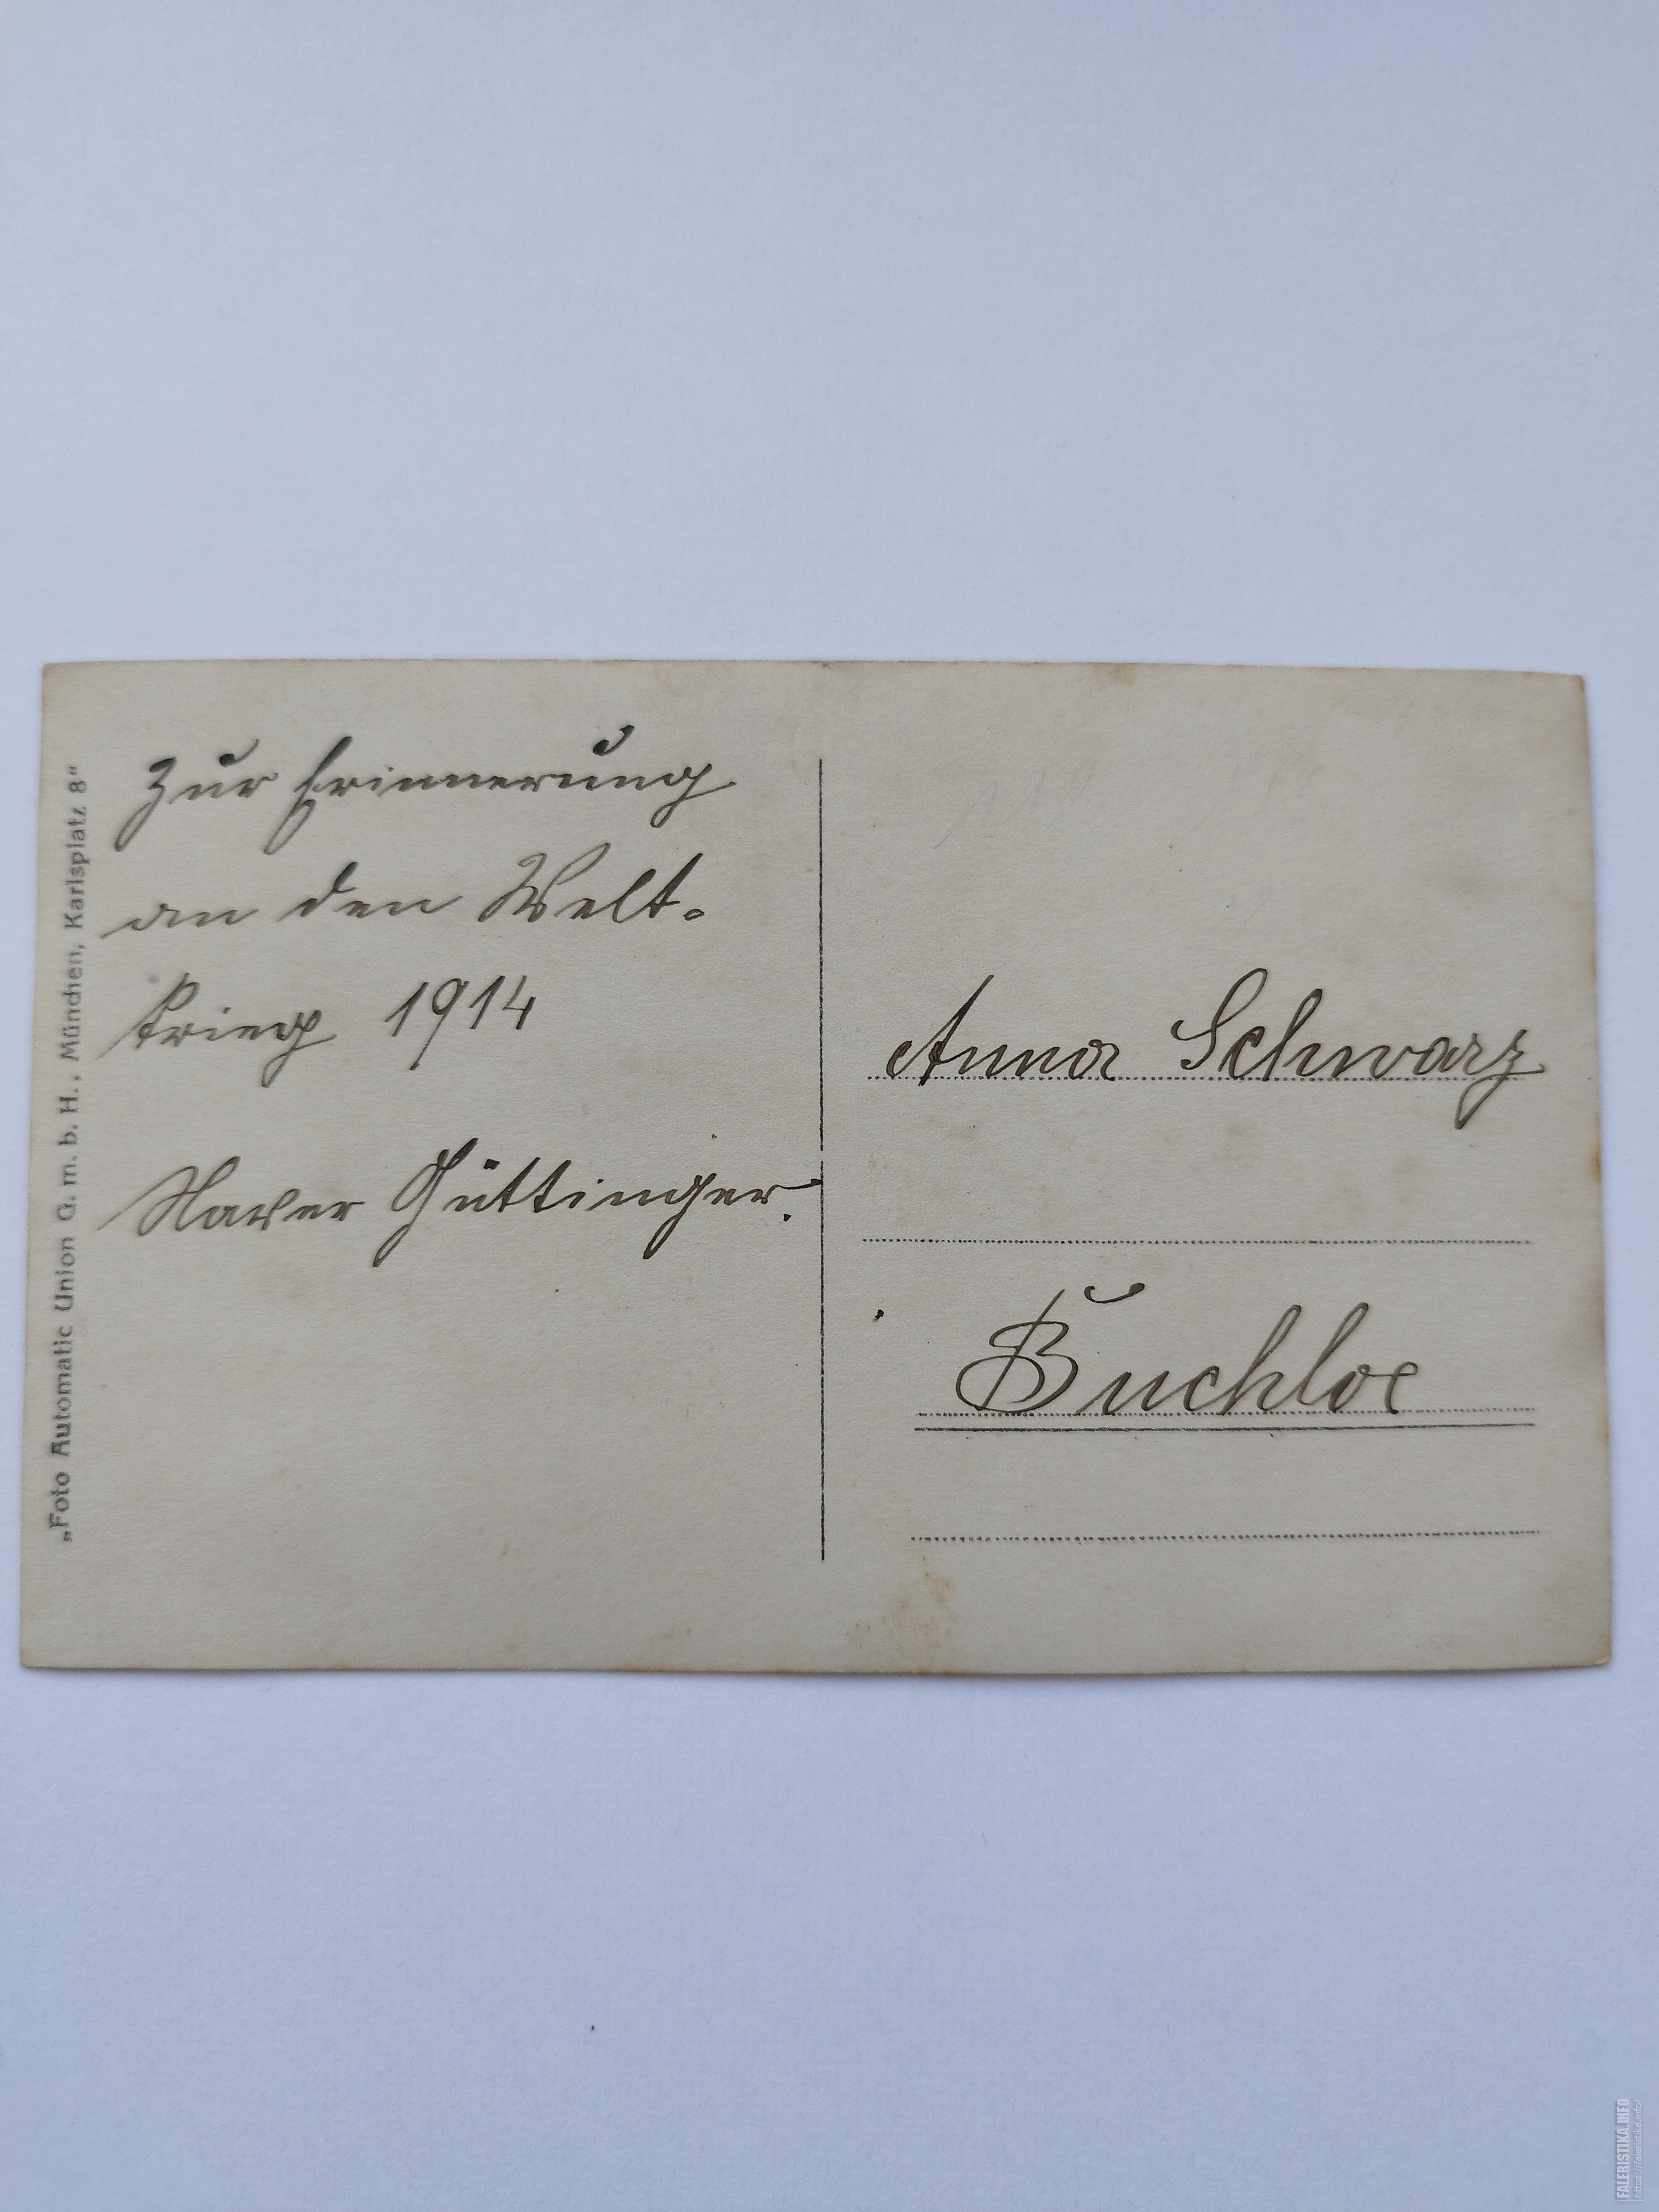 „Foto Automatic Union G. m. b. H., München, Karlsplatz 8“
Zur Erinnerung
an den Welt-
krieg 1914
Xaver Güttinger.
Anna Schwarz
Buchloe
FALERISTIKA.INFO
https://faleristika.info/